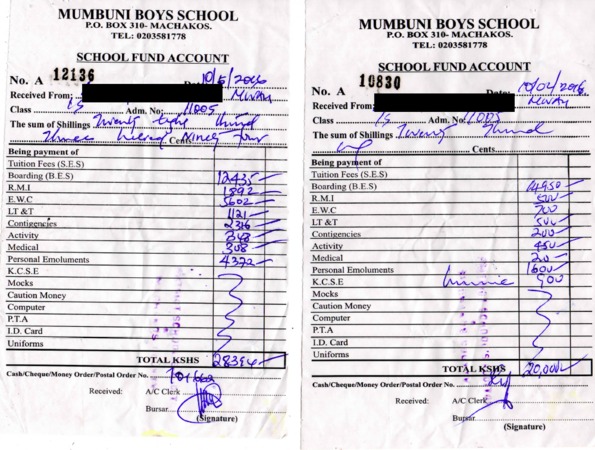 MUMBUNI BOYS SCHOOL
P.O. BOX 310- MACHAKOS.
TEL: 0203581778
SCHOOL FUND ACCOUNT
No. A 12136
10/5/2016
Received From:
Class 1S Adm. No: 11005
The sum of Shillings Twenty Eight Thousand
Three Hundred Ninety Four Cents
Being payment of
Tuition Fees (S.E.S)
Boarding (B.E.S) 12435
R.M.I 1892
E.W.C 5602
LT &T 1121
Contigencies 2316
Activity 348
Medical 308
Personal Emoluments 4372
K.C.S.E
Mocks
Caution Money
Computer
P.T.A
I.D. Card
Uniforms
TOTAL KSHS 28394
Cash/Cheque/Money Order/Postal Order No.
Received: A/C Clerk
Bursar
(Signature)
MUMBUNI BOYS SCHOOL
P.O. BOX 310- MACHAKOS.
TEL: 0203581778
SCHOOL FUND ACCOUNT
No. A 10830 Date:
Received From:
Class 1S Adm. No:
The sum of Shillings Twenty
Cents
Being payment of
Tuition Fees (S.E.S)
Boarding (B.E.S) 14950
R.M.I 500
E.W.C 700
LT &T 500
Contigencies 200
Activity 450
Medical 200
Personal Emoluments 1600
K.C.S.E 900
Mocks
Caution Money
Computer
P.T.A
I.D. Card
Uniforms
TOTAL KSHS 20,000
Cash/Cheque/Money Order/Postal Order No.
Received: A/C Clerk
Bursar
(Signature)